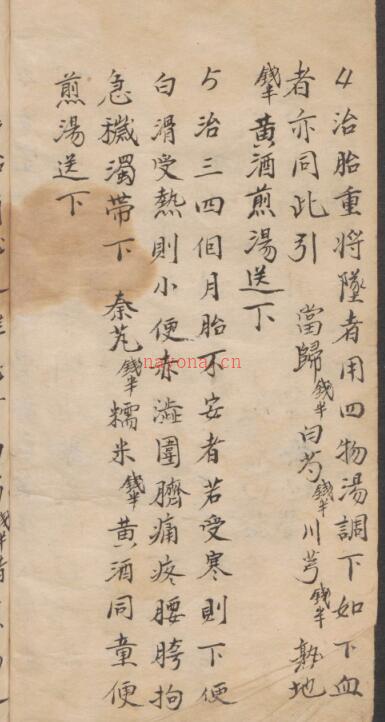 4治胎重將墜者用四物湯調下如下血
者亦同此引　當歸錢半白芍錢半川芎錢半熟地
錢半黃酒煎湯送下
5治三四個月胎不安者若受寒則下便
白滑受熱則小便赤澁圍臍痛疼腰胯拘
急穢濁帶下　秦艽錢半糯米錢半黃酒同童便
煎湯送下
nayona.cn